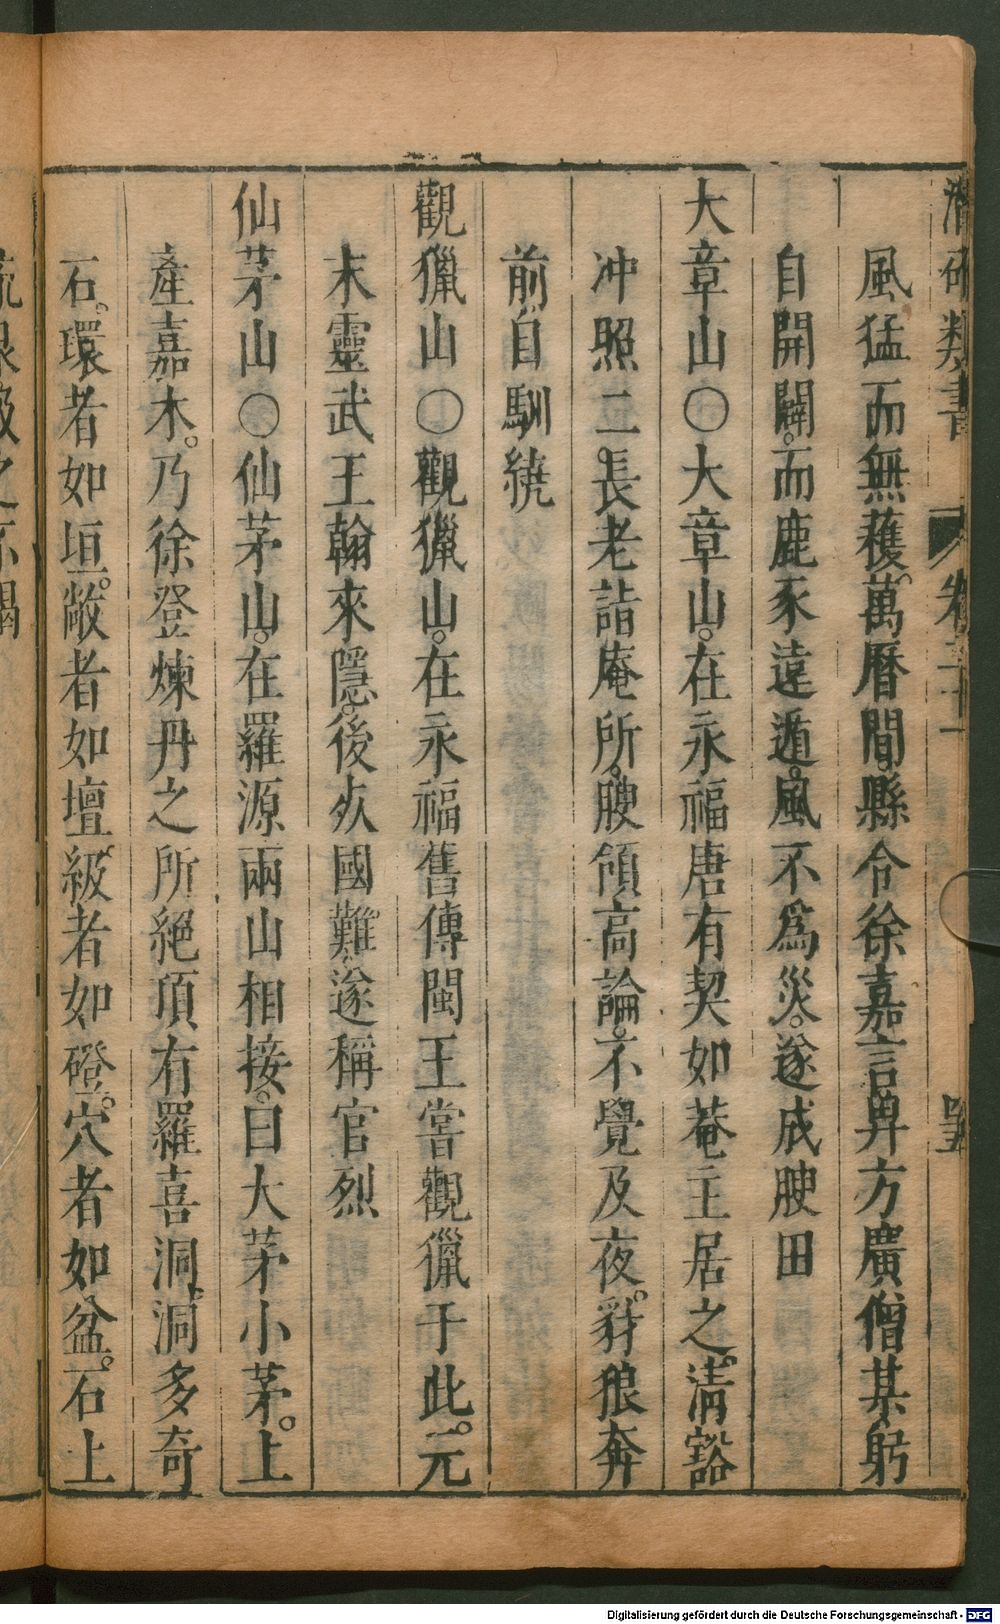 風猛而無蓻萬曆間縣令徐嘉言畀方廣僧某躬
自開闢。而鹿豕遠遁。風不爲災。遂成腴田
大章山〇大章山。在永福唐有契如菴主居之。淸豁
冲照二長老詣庵所。腴領高論。不覺及夜。豺狼奔
前自馴繞
觀獵山〇觀獵山。在永福舊傳閩王嘗觀獵于此。元
末靈武王翰來隱。後㱙國難。遂稱官烈
仙茅山〇仙茅山。在羅源兩山相接。曰大茅小茅。上
產嘉木。乃徐登煉丹之所絕頂有羅喜洞。洞多奇
石。環者如垣。敞者如壇。級者如磴。穴者如盆。石上
類書 卷三十一
Digitalisierung gefördert durch die Deutsche Forschungsgemeinschaft - DFG